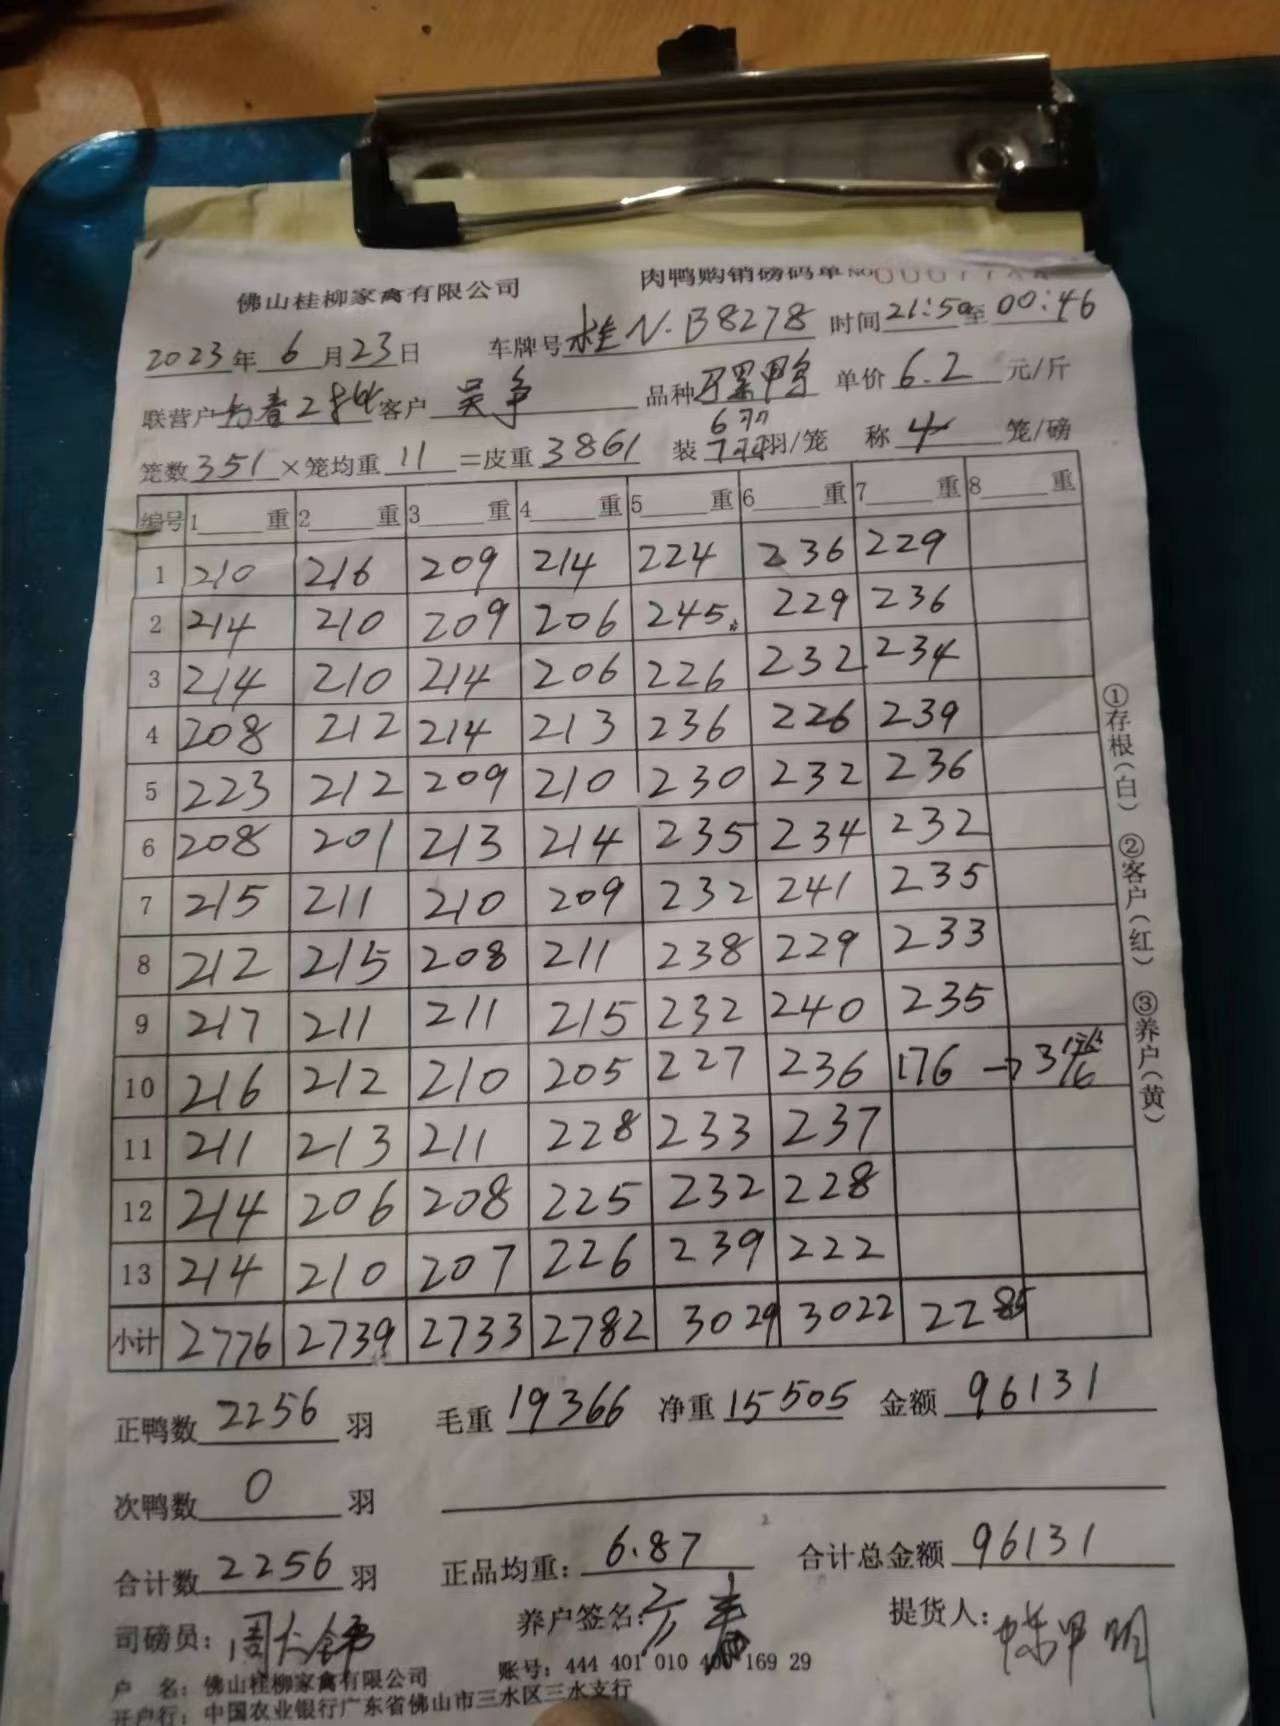 佛山桂柳家禽有限公司 肉鸭购销磅码单 NO
2023年 6月23日 车牌号桂N·B8278 时间21:50至00:46
联营户 客户 吴争 品种 单价6.2元/斤
笼数351×笼均重11=皮重3861 装 羽/笼 称4笼/磅
编号 1 重 2 重 3 重 4 重 5 重 6 重 7 重 8 重
1 210 216 209 214 224 236 229
2 214 210 209 206 245 229 236
3 214 210 214 206 226 232 234
4 208 212 214 213 236 226 239
5 223 212 209 210 230 232 236
6 208 201 213 214 235 234 232
7 215 211 210 209 232 241 235
8 212 215 208 211 238 229 233
9 217 211 211 215 232 240 235
10 216 212 210 205 227 236 176 → 3
11 211 213 211 228 233 237
12 214 206 208 225 232 228
13 214 210 207 226 239 222
小计 2776 2739 2733 2782 3029 3022 2285
正鸭数2256羽 毛重19366 净重15505 金额96131
次鸭数0羽
合计数2256羽 正品均重:6.87 合计总金额96131
司磅员: 养户签名: 提货人:
户 名: 佛山桂柳家禽有限公司 账号: 444 401 010 169 29
开户行: 中国农业银行广东省佛山市三水区三水支行
①存根(白) ②客户(红) ③养户(黄)